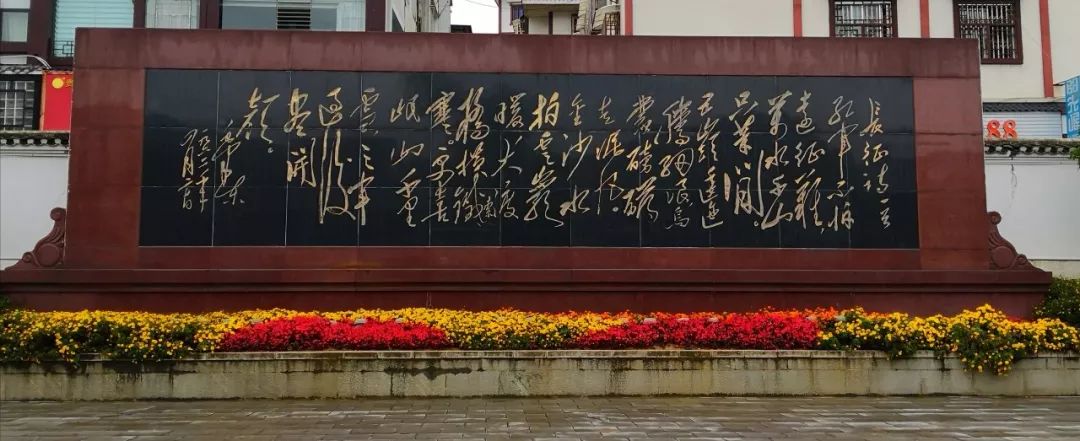 长征诗一首
红军不怕
远征难，
万水千山
只等闲。
五岭逶迤
腾细浪，乌
蒙磅礴
走泥丸。
金沙水
拍云崖
暖，大渡
桥横铁索
寒。更喜
岷山千里
雪，三军
过后
尽开
颜。
毛泽东
一九六二年
四月二十日
88